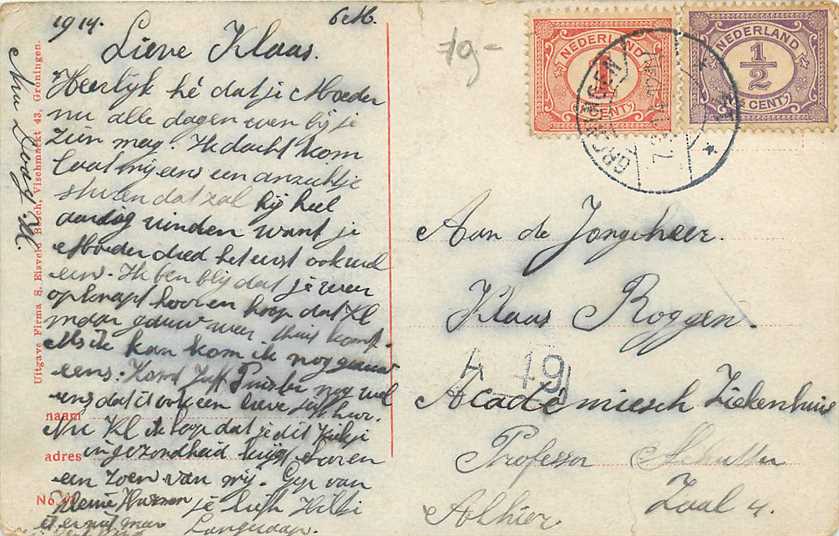 1914.
Lieve Klaas.
Heerlijk hé dat je Moeder
nu alle dagen even bij je
zien mag. Ik dacht kom
laat mij eens een anzichtje
sturen dat zal hij heel
aardig vinden want je
Moeder deed het eerst ook wel
eens. Ik ben blij dat je weer
opknapt hoor en hoop dat Kl
maar gauw weer thuis komt.
Als ik kan kom ik nog gauw
eens. Komt Juff nog wel
eens dat is ook een lieve juf hoor.
Nu Kl ik hoop dat je dit
in gezondheid
een zoen van mij. van
kleine Harmen je
Nu Daag. K.
Uitgave Firma S. Elzevela Bosch, Vischmarkt 43, Groningen.
naam
adres
No.
79-
NEDERLAND
1
CENT
NEDERLAND
1/2
CENT
GRONINGEN
Aan de Jongeheer.
Klaas Roggen.
4 19
Academiesch Ziekenhuis
Professor
Zaal 4.
Alhier.